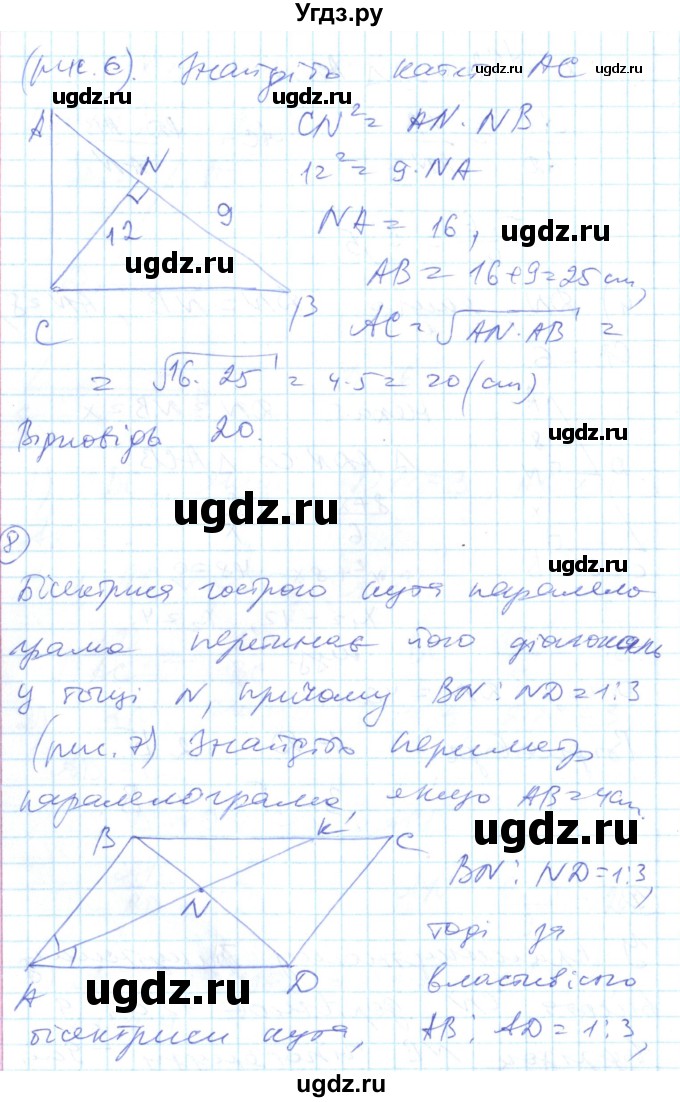 Угдз.ру
(рис. 6). Знайдіть катет AC
ugdz.ru ugdz.ru ugdz.ru
A
N
9
12
C
B
CN² = AN · NB.
12² = 9 · NA
NA = 16,
ugdz.ru
ugdz.ru
AB = 16+9=25 cm,
AC = √AN·AB =
= √16·25 = 4·5= 20 (cm)
Відповідь 20.
ugdz.ru
ugdz.ru
8
ugdz.ru
Бісектриса гострого кута парале́ло
грама перетинає його діагональ
у точці N, причому BN : ND = 1:3
(рис. 7) Знайдіть периметр
паралелограма, якщо AB = 4cm.
ugdz.ru
B
K
C
N
A
D
BN : ND = 1:3,
тоді за
ugdz.ru
властивістю
бісектриси кута, AB : AD = 1:3,
ugdz.ru